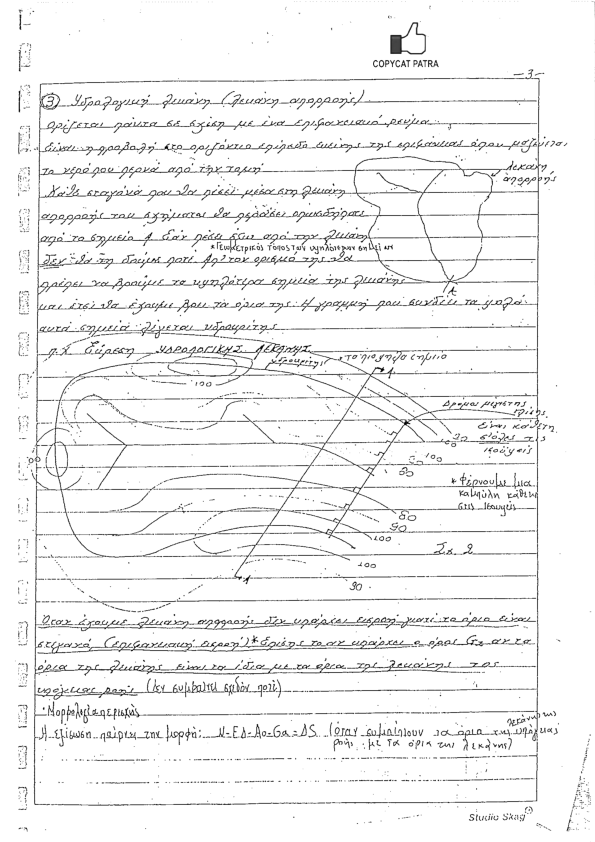 COPYCAT PATRA
-3-
③ Υδρολογική λεκάνη (λεκάνη απορροής)
Ορίζεται πάντα σε σχέση με ένα επιφανειακό ρεύμα.
Είναι η προβολή στο οριζόντιο επίπεδο εκείνης της επιφάνειας όπου μαζεύεται
το νερό που περνά από την τομή
Λεκάνη
απορροής
Κάθε σταγόνα που θα πέσει μέσα στη λεκάνη
απορροής του σχήματος θα περάσει οπωσδήποτε
από το σημείο Α εάν πέσει έξω από την λεκάνη
*Γεωμετρικός τόπος των υψηλότερων σημείων
δεν θα τη δούμε ποτέ. Απ' τον ορισμό της θα
πρέπει να βρούμε τα υψηλότερα σημεία της λεκάνης
Α
και έτσι θα έχουμε βρει τα όρια της. Η γραμμή που συνδέει τα ψηλά
αυτά σημεία λέγεται υδροκρίτης
π.χ. Εύρεση ΥΔΡΟΛΟΓΙΚΗΣ ΛΕΚΑΝΗΣ
υδροκρίτης
• Το πιο ψηλό σημείο
100
Δρόμοι μεγίστης
κλίσης
Είναι κάθετη
σ' όλες τις
ισοϋψείς
100
90
80
* Φέρνουμε μια
καμπύλη κάθετη
στις ισοϋψείς
80
90
100
Σχ. 2
100
90
Όταν έχουμε λεκάνη απορροής δεν υπάρχει εισροή γιατί το όριο είναι
στεγανό (επιφανειακή εισροή)* Επίσης το αν υπάρχει ο όρος G αν τα
όρια της λεκάνης είναι τα ίδια με τα όρια της λεκάνης της
υπόγειας ροής (δεν συμβαίνει σχεδόν ποτέ)
• Μορφολογία περιοχής
Η εξίσωση παίρνει την μορφή: N-Ed-Ao-Ga=ΔS (όταν συμπίπτουν τα όρια της λεκάνης της υπόγειας
ροής με τα όρια της λεκάνης)
Studio Skag